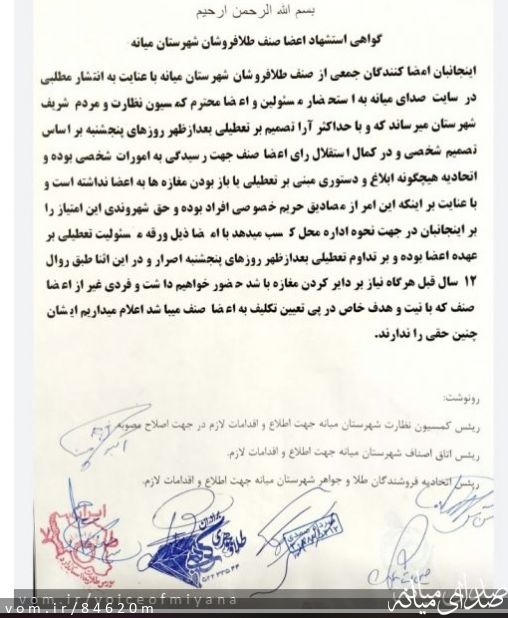 بسم الله الرحمن الرحیم
گواهی استشهاد اعضا صنف طلافروشان شهرستان میانه
اینجانبان امضا کنندگان جمعی از صنف طلافروشان شهرستان میانه با عنایت به انتشار مطلبی
در سایت صدای میانه به استحضار مسئولین و اعضا محترم کمسیون نظارت و مردم شریف
شهرستان میرساند که و با حداکثر آرا تصمیم بر تعطیلی بعدازظهر روزهای پنجشنبه بر اساس
تصمیم شخصی و در کمال استقلال رای اعضا صنف جهت رسیدگی به امورات شخصی بوده و
اتحادیه هیچگونه ابلاغ و دستوری مبنی بر تعطیلی یا باز بودن مغازه ها به اعضا نداشته است و
با عنایت بر اینکه این امر از مصادیق حریم خصوصی افراد بوده و حق شهروندی این امتیاز را
بر اینجانبان در جهت نحوه اداره محل کسب میدهد با امضا ذیل ورقه مسئولیت تعطیلی بر
عهده اعضا بوده و بر تداوم تعطیلی بعدازظهر روزهای پنجشنبه اصرار و در این اثنا طبق روال
۱۲ سال قبل هرگاه نیاز بر دایر کردن مغازه باشد حضور خواهیم داشت و فردی غیر از اعضا
صنف که با نیت و هدف خاص در پی تعیین تکلیف به اعضا صنف میباشد اعلام میداریم ایشان
چنین حقی را ندارند.
رونوشت:
رئیس کمسیون نظارت شهرستان میانه جهت اطلاع و اقدامات لازم در جهت اصلاح مصوبه
رئیس اتاق اصناف شهرستان میانه جهت اطلاع و اقدامات لازم.
رئیس اتحادیه فروشندگان طلا و جواهر شهرستان میانه جهت اطلاع و اقدامات لازم.
صدای میانه
vom.ir/voiceofmiyana
vom.ir/84620m